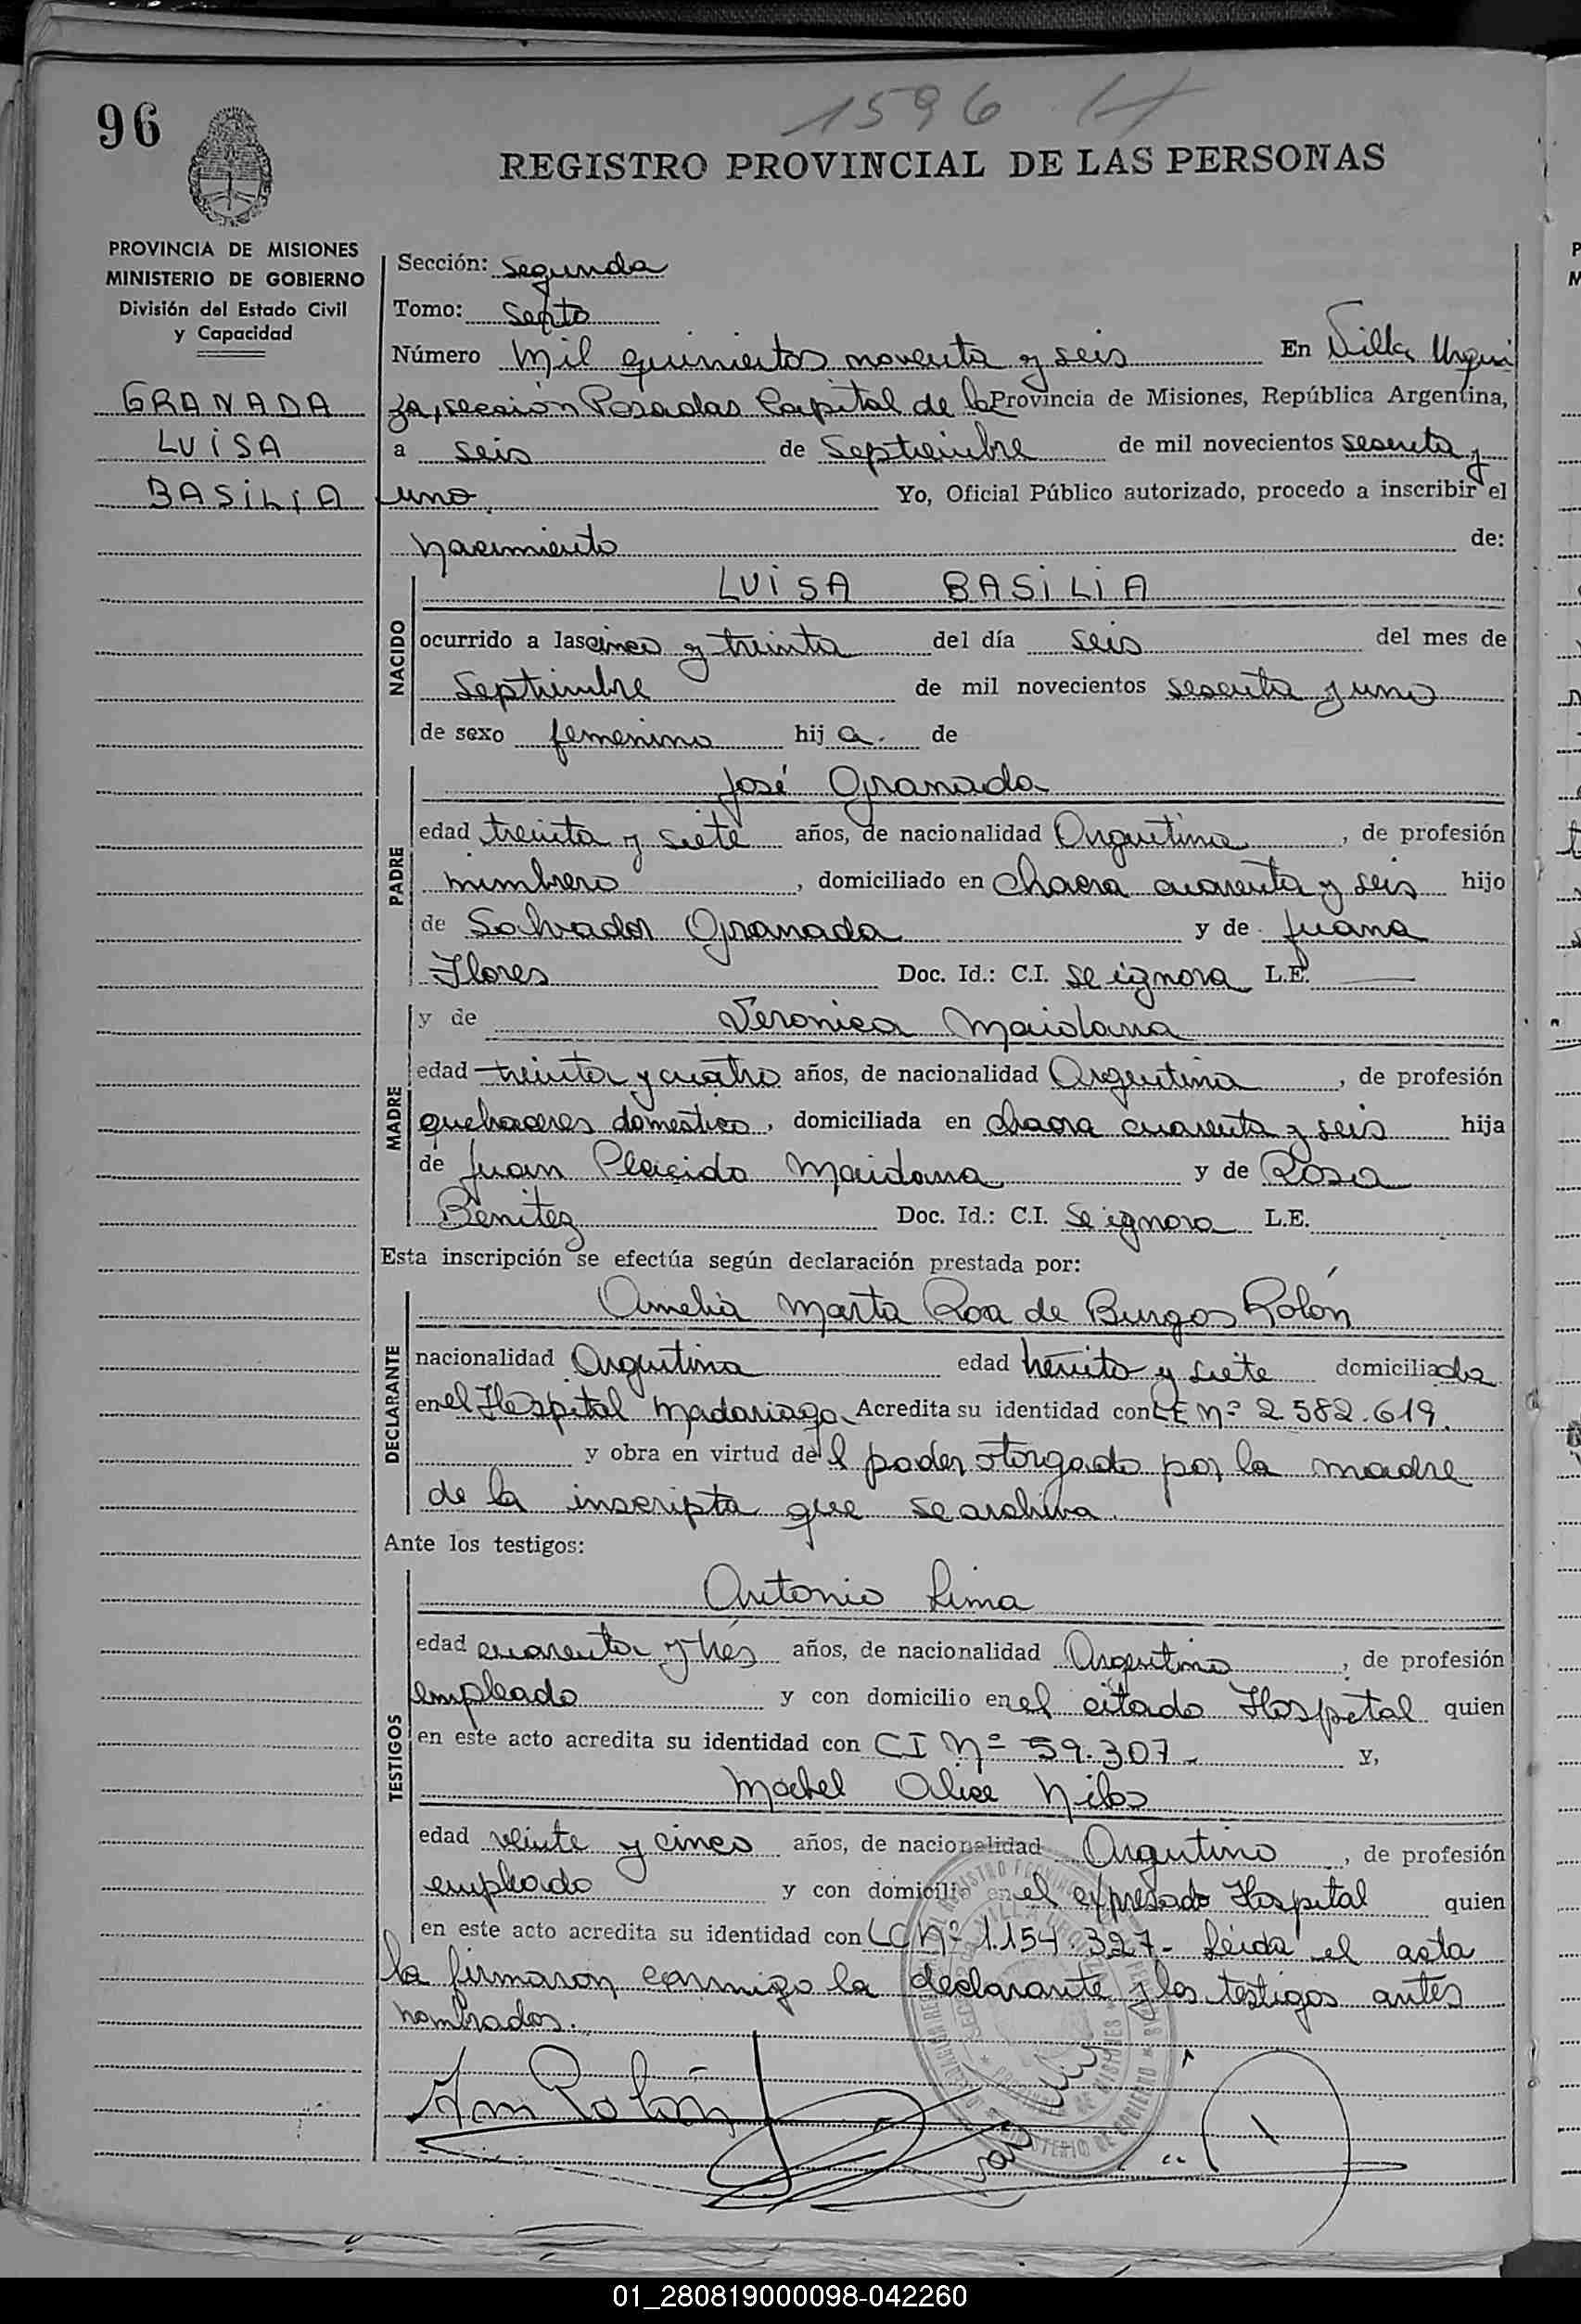 96
1596 H
REGISTRO PROVINCIAL DE LAS PERSONAS
PROVINCIA DE MISIONES
MINISTERIO DE GOBIERNO
División del Estado Civil
y Capacidad
GRANADA
LUISA
BASILIA
Sección: Segunda
Tomo: Septo
Número Mil quinientos noventa y seis En Villa Urqui
za, sección Posadas Capital de la Provincia de Misiones, República Argentina,
a seis de Septiembre de mil novecientos sesenta y
uno. Yo, Oficial Público autorizado, procedo a inscribir el
nacimiento de:
NACIDO
LUISA BASILIA
ocurrido a las cinco y treinta del día seis del mes de
Septiembre de mil novecientos sesenta y uno
de sexo femenino hij a. de
PADRE
José Granada
edad treinta y siete años, de nacionalidad Argentina, de profesión
mimbrero, domiciliado en chacra cuarenta y seis hijo
de Salvador Granada y de Juana
Flores Doc. Id.: C.I. se ignora L.E.
MADRE
y de Veronica Maidana
edad treinta y cuatro años, de nacionalidad Argentina, de profesión
quehaceres domestico, domiciliada en chacra cuarenta y seis hija
de Juan Placido Maidana y de Rosa
Benitez Doc. Id.: C.I. Se ignora L.E.
Esta inscripción se efectúa según declaración prestada por:
DECLARANTE
Amelia Marta Roa de Burgos Rolón
nacionalidad Argentina edad treinta y siete domiciliada
en el Hospital Madariaga. Acredita su identidad con LE Nº 2582.619.
y obra en virtud del poder otorgado por la madre
de la inscripta que se archiva.
Ante los testigos:
TESTIGOS
Antonio Lima
edad cuarenta y tres años, de nacionalidad Argentina, de profesión
empleado y con domicilio en el citado Hospital quien
en este acto acredita su identidad con CI Nº 59.307- y,
Mabel Alice
edad veinte y cinco años, de nacionalidad Argentino, de profesión
empleado y con domicilio en el expresado Hospital quien
en este acto acredita su identidad con LC Nº 1.154.327- Leida el acta
la firmaron conmigo la declarante y los testigos antes
nombrados.
01_280819000098-042260